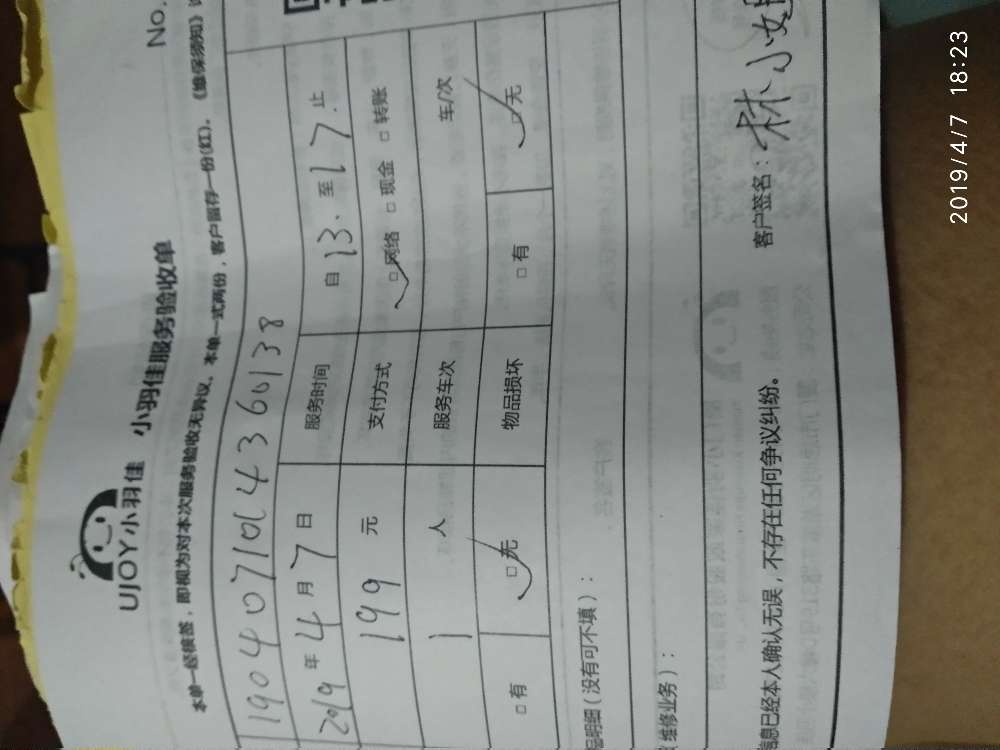 No.
UJOY小羽佳 小羽佳服务验收单
本单一经核签，即视为对本次服务验收无异议。本单一式两份，客户留存一份(红)。《维保须知》
1904071014360138
2019年4月7日 服务时间 自13、至17.止
199元 支付方式 ☑网络 □现金 □转账
1人 服务车次 车/次
□有 ☑无 物品损坏 □有 ☑无
明细（没有可不填）：
维修业务）：
信息已经本人确认无误，不存在任何争议纠纷。 客户签名：林小
2019/4/7 18:23